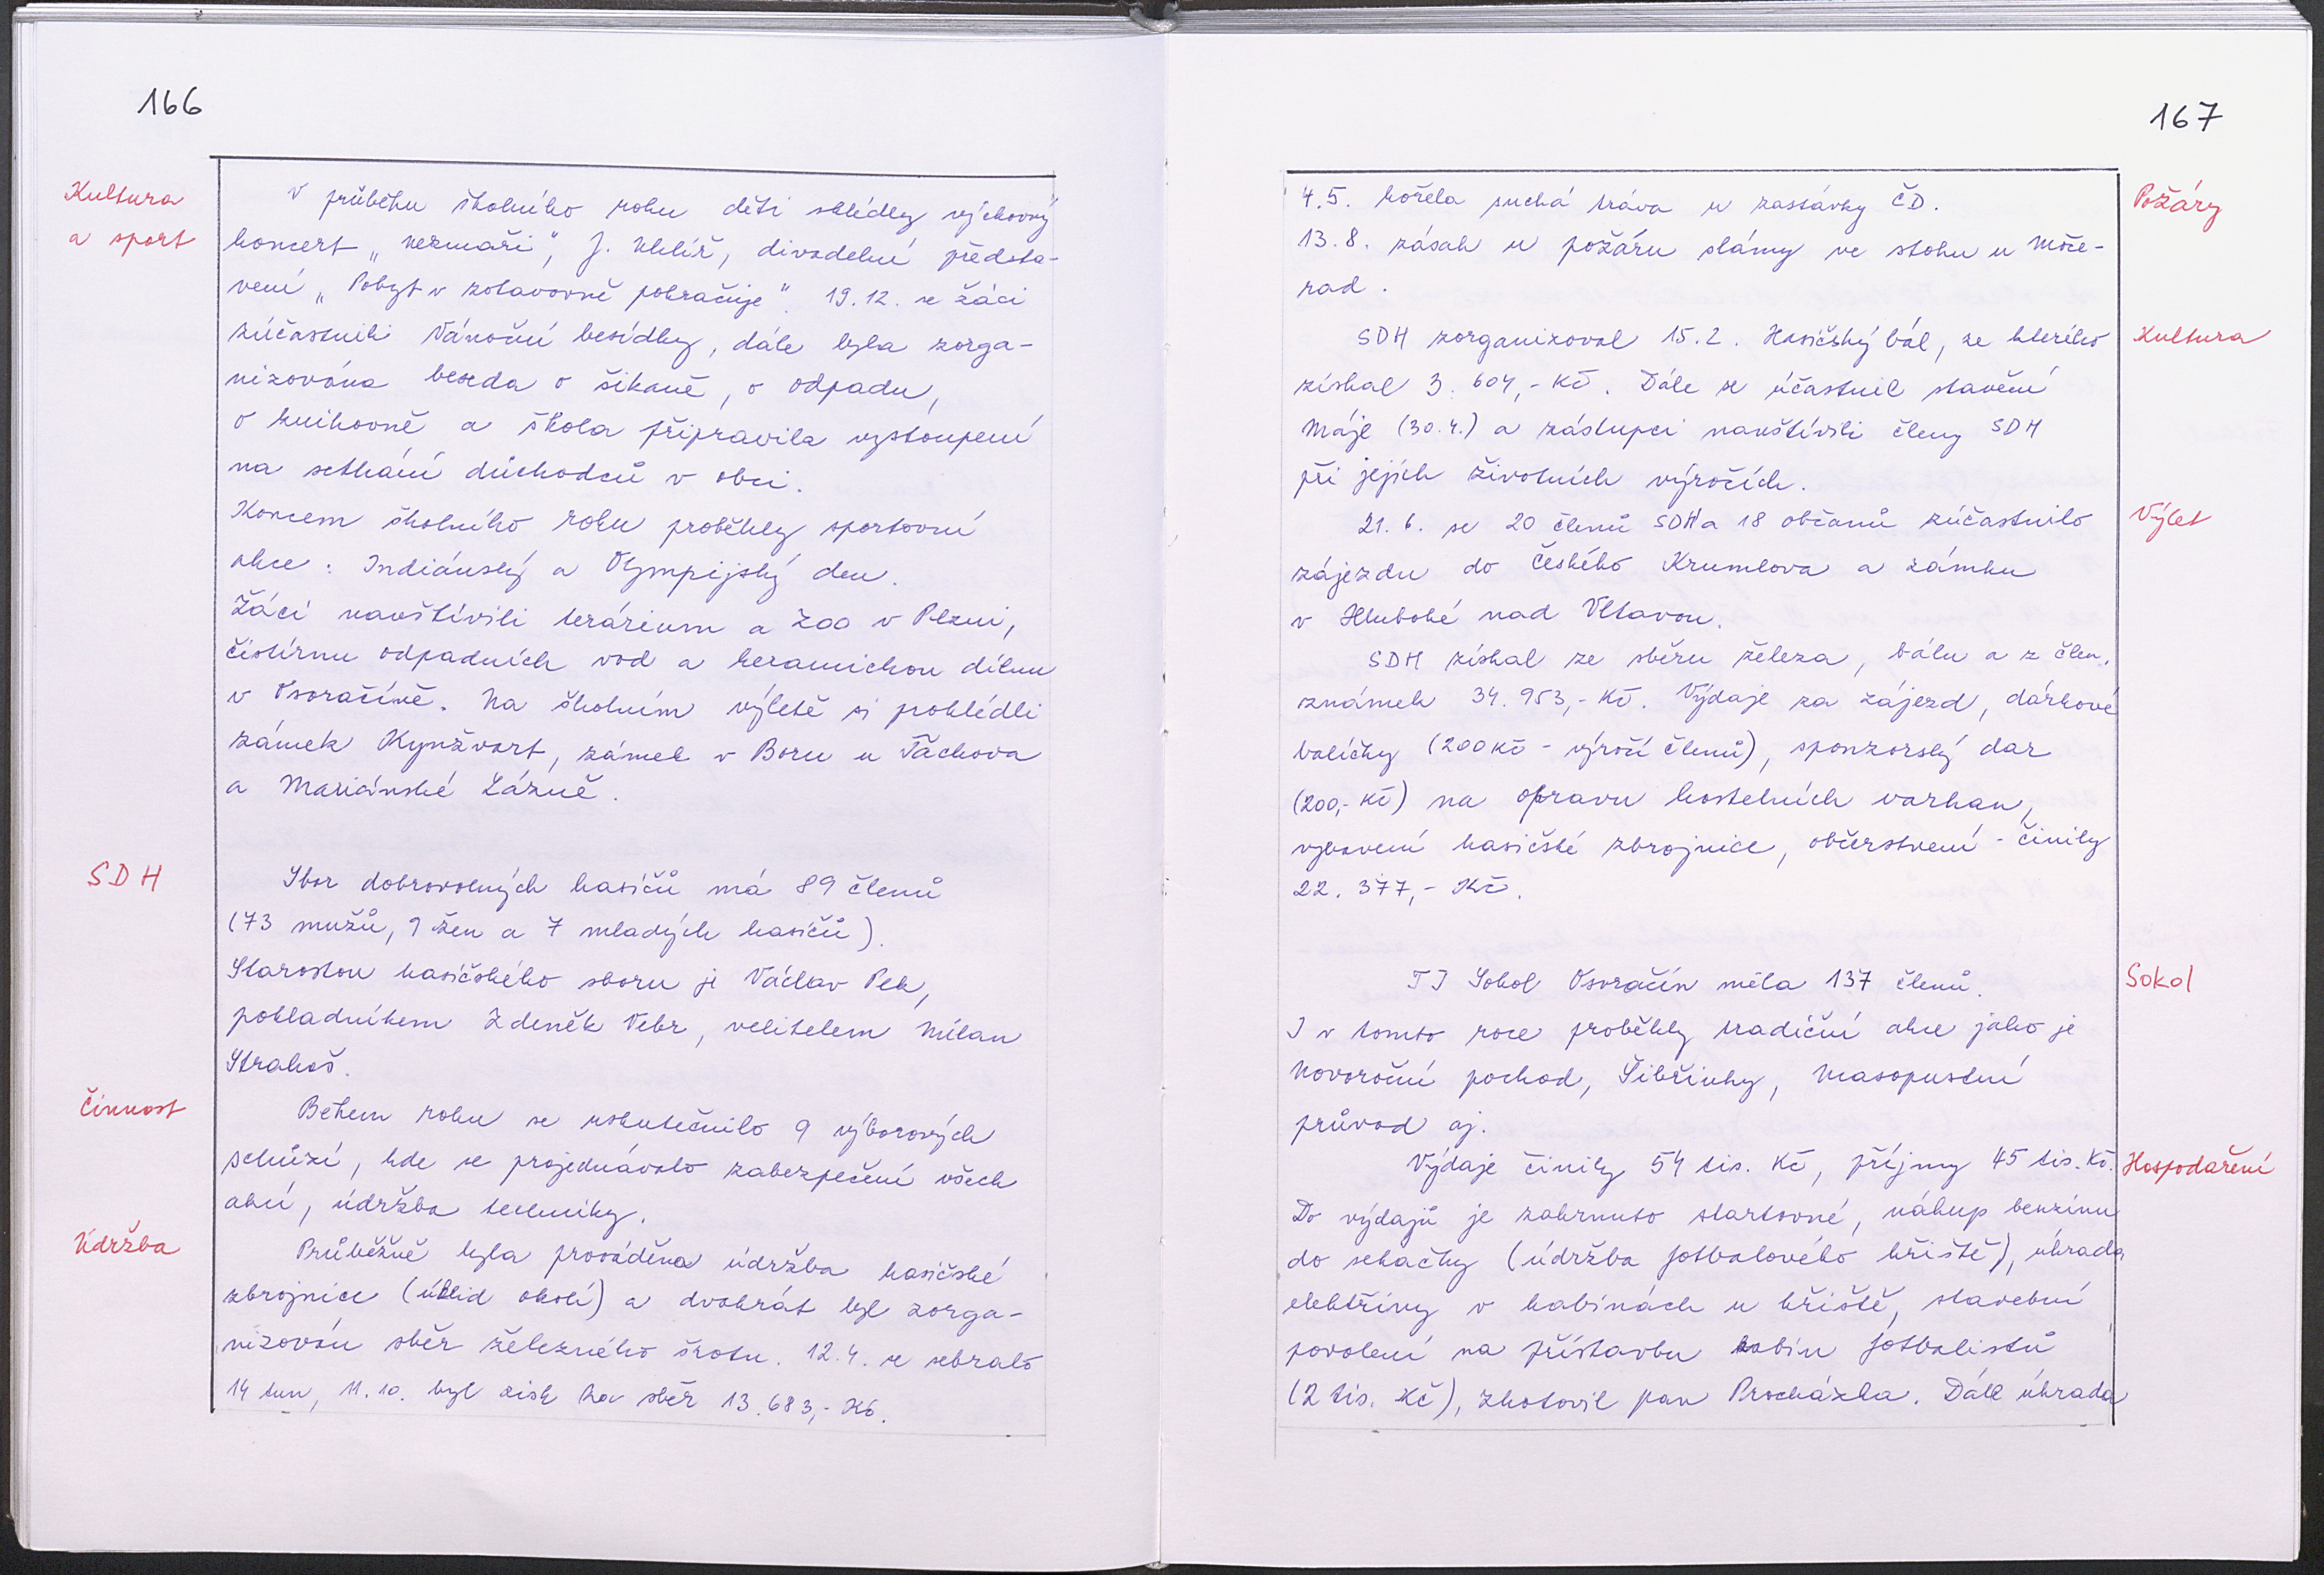 166
Kultura
a sport
V průběhu školního roku děti shlédly výchovný
koncert „Nezmaři“, J. Uhlíř, divadelní předsta-
vení „Pobyt v zotavovně pokračuje“. 19.12. se žáci
zúčastnili Vánoční besídky, dále byla zorga-
nizována beseda o šikaně, o odpadu,
o knihovně a škola připravila vystoupení
na setkání důchodců v obci.
Koncem školního roku proběhly sportovní
akce: Indiánský a Olympijský den.
Žáci navštívili terárium a ZOO v Plzni,
čistírnu odpadních vod a keramickou dílnu
v Osvračíně. Na školním výletě si pohlédli
zámek Kynžvart, zámek v Boru u Tachova
a Mariánské Lázně.
SDH
Sbor dobrovolných hasičů má 89 členů
(73 mužů, 9 žen a 7 mladých hasičů).
Starostou hasičského sboru je Václav Pek,
pokladníkem Zdeněk Vebr, velitelem Milan
Strakoš.
Činnost
Během roku se uskutečnilo 9 výborových
schůzí, kde se projednávalo zabezpečení všech
akcí, údržba techniky.
Údržba
Průběžně byla prováděna údržba hasičské
zbrojnice (úklid okolí) a dvakrát byl zorga-
nizován sběr železného šrotu. 12.4. se sebralo
14 tun, 11.10. byl zisk za sběr 13.683,- Kč.
167
4.5. hořela suchá tráva u zastávky ČD.
Požáry
13.8. zásah u požáru slámy ve stohu u Moče-
rad.
SDH zorganizoval 15.2. Hasičský bál, ze kterého
Kultura
získal 3.604,- Kč. Dále se účastnil stavění
Máje (30.4.) a zástupci navštívili členy SDH
při jejich životních výročích.
21.6. se 20 členů SDH a 18 občanů zúčastnilo
Výlet
zájezdu do Českého Krumlova a zámku
v Hluboké nad Vltavou.
SDH získal ze sběru železa, bálu a z člen.
známek 34.953,- Kč. Výdaje za zájezd, dárkové
balíčky (200 Kč - výročí členů), sponzorský dar
(200,- Kč) na opravu kostelních varhan,
vybavení hasičské zbrojnice, občerstvení - činily
22.377,- Kč.
TJ Sokol Osvračín měla 137 členů.
Sokol
I v tomto roce proběhly tradiční akce jako je
Novoroční pochod, Šibřinky, Masopustní
průvod aj.
Výdaje činily 54 tis. Kč, příjmy 45 tis. Kč.
Hospodaření
Do výdajů je zahrnuto startovné, nákup benzínu
do sekačky (údržba fotbalového hřiště), úhrada
elektřiny v kabinách u hřiště, stavební
povolení na přístavbu kabin fotbalistů
(2 tis. Kč), zhotovil pan Procházka. Dále úhrada